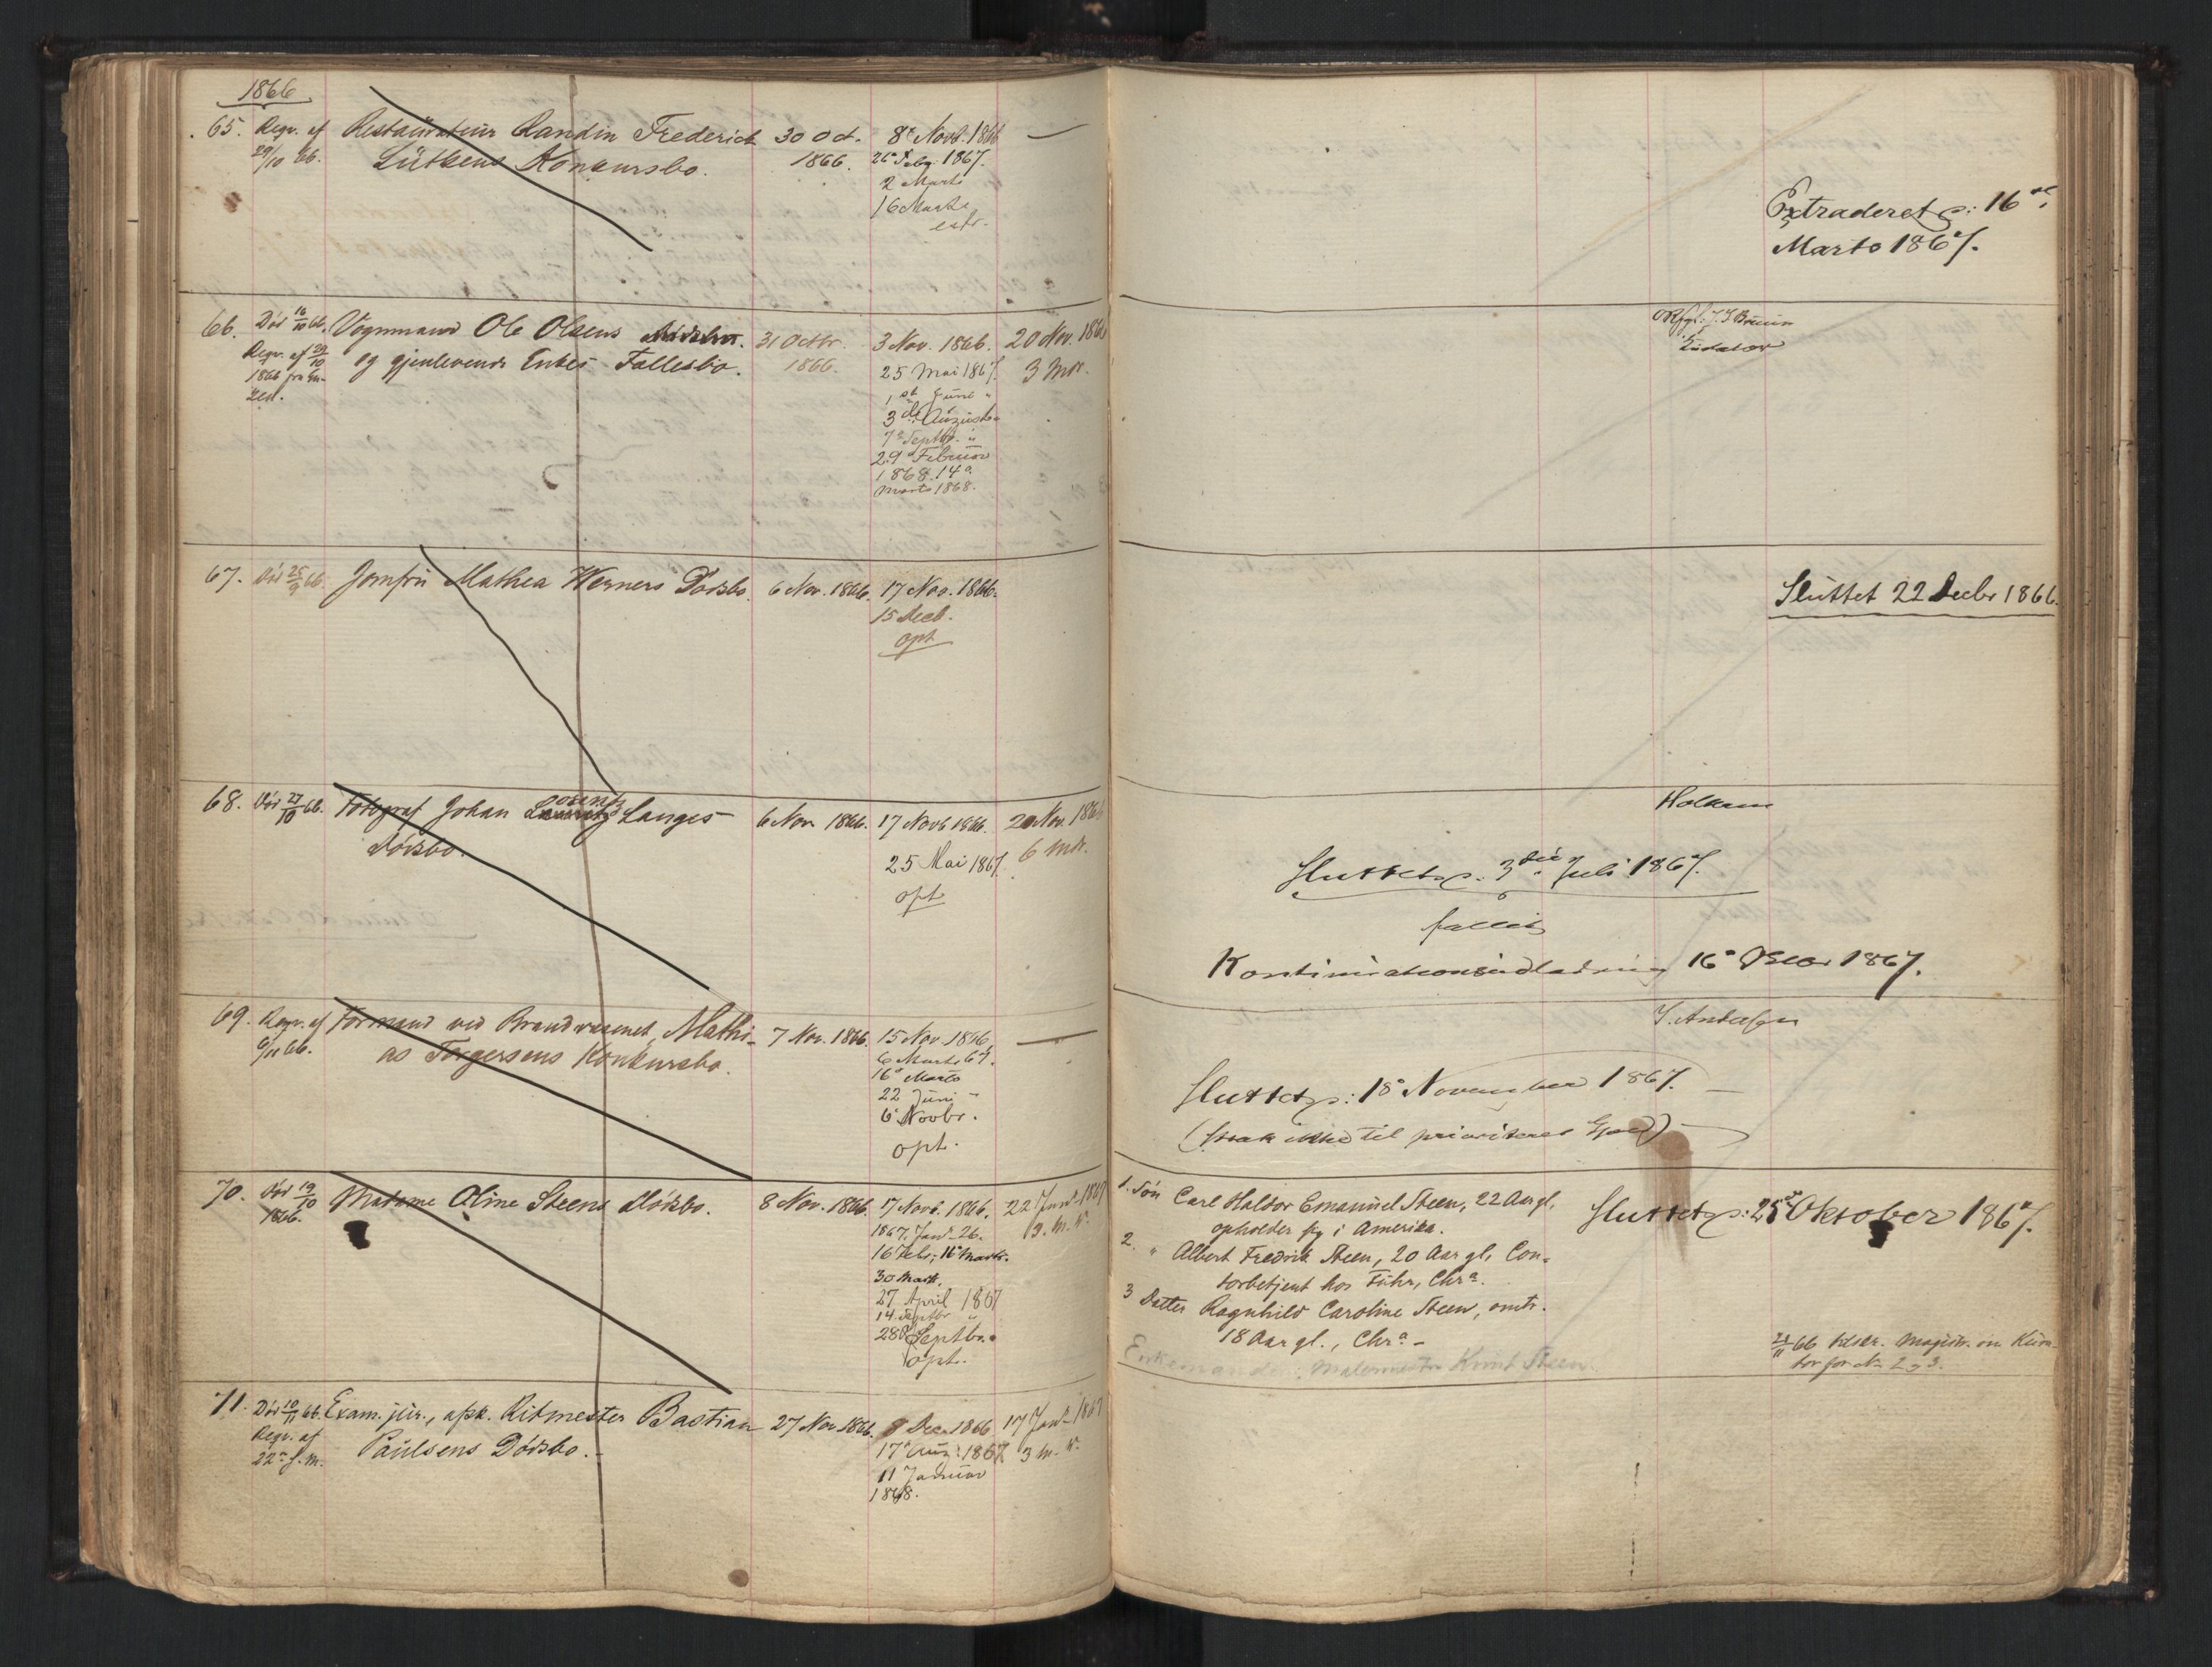 1866
65. Reqv. af Restaurateur Randin Frederick 30 Oct. 8 Novb. 1866 —
29/10 66. Lütkens Konkursbo. 1866. 26 Febr. 1867.
2 Marts
16 Marts
extr.
Extraderet p: 16de
Marts 1867.
66. Død 16/10 66. Vognmand Ole Olsens 31 Octbr. 3 Nov. 1866. 20 Nov. 1866
Reqv. af 29/10 og gjenlevende Enkes Fallesbo. 1866. 25 Mai 1867. 3 Mdr.
1866 fra En-
ken.
1st Juni "
3die Augusti "
7de Septbr. "
29 Februar
1868. 14de
Marts 1868.
67. Død 25/9 66. Jomfru Mathea Werners Dødsbo. 6 Nov. 1866. 17 Nov. 1866.
15 Decb.
opt
Sluttet 22 Decbr 1866.
68. Død 27/10 66. Fotograf Johan Lorentz Langes 6 Nov. 1866. 17 Novb 1866. 20 Nov. 1866
Dødsbo. 25 Mai 1867. 6 Mdr.
opt
Sluttet p. 3die Juli 1867.
fallit
16de 1867.
69. Reqv. af Formand ved Brandvæsenet, Mathi- 7 Nov. 1866. 15 Nov 1866. —
6/11 66. as Torgersens Konkursbo. 6 Marts 67.
16de Marts
22 Juni "
6 Novbr.
opt.
Sluttet p: 18de November 1867. —
(strak ikke til prioriteret Gjæld) —
70. Død 19/10 Madame Oline Steens Dødsbo. 8 Nov. 1866. 17 Novb. 1866. 22 Janr 1867
1866. 1867. Janr 26. 3. M. K.
16 Febr; 16 Marts.
30 Marts.
27 April 1867
14. Septbr "
28de Septbr.
opt.
1. Søn Carl Haldor Emanuel Steen, 22 Aar gl, Sluttet p: 25de Oktober 1867.
opholder sig i Amerika.
2. " Albert Fredrik Steen, 20 Aar gl, Con-
torbetjent hos Führ, Chra.
3 Datter Ragnhild Caroline Steen, omtr.
18 Aar gl., Chra. —
Enkemanden: Malermester Knut Steen.
66 tilskr. Magistr. om Kura-
tor for No 2 og 3.
71. Død 10/11 66. Exam. jur., afsk. Ritmester Bastian 27 Nov 1866. 8 Dec. 1866 17 Janr 1867
Reqv. af Paulsens Dødsbo. — 17de Aug: 1867 3 M. K.
22de s. m. 11 Januar
1868.